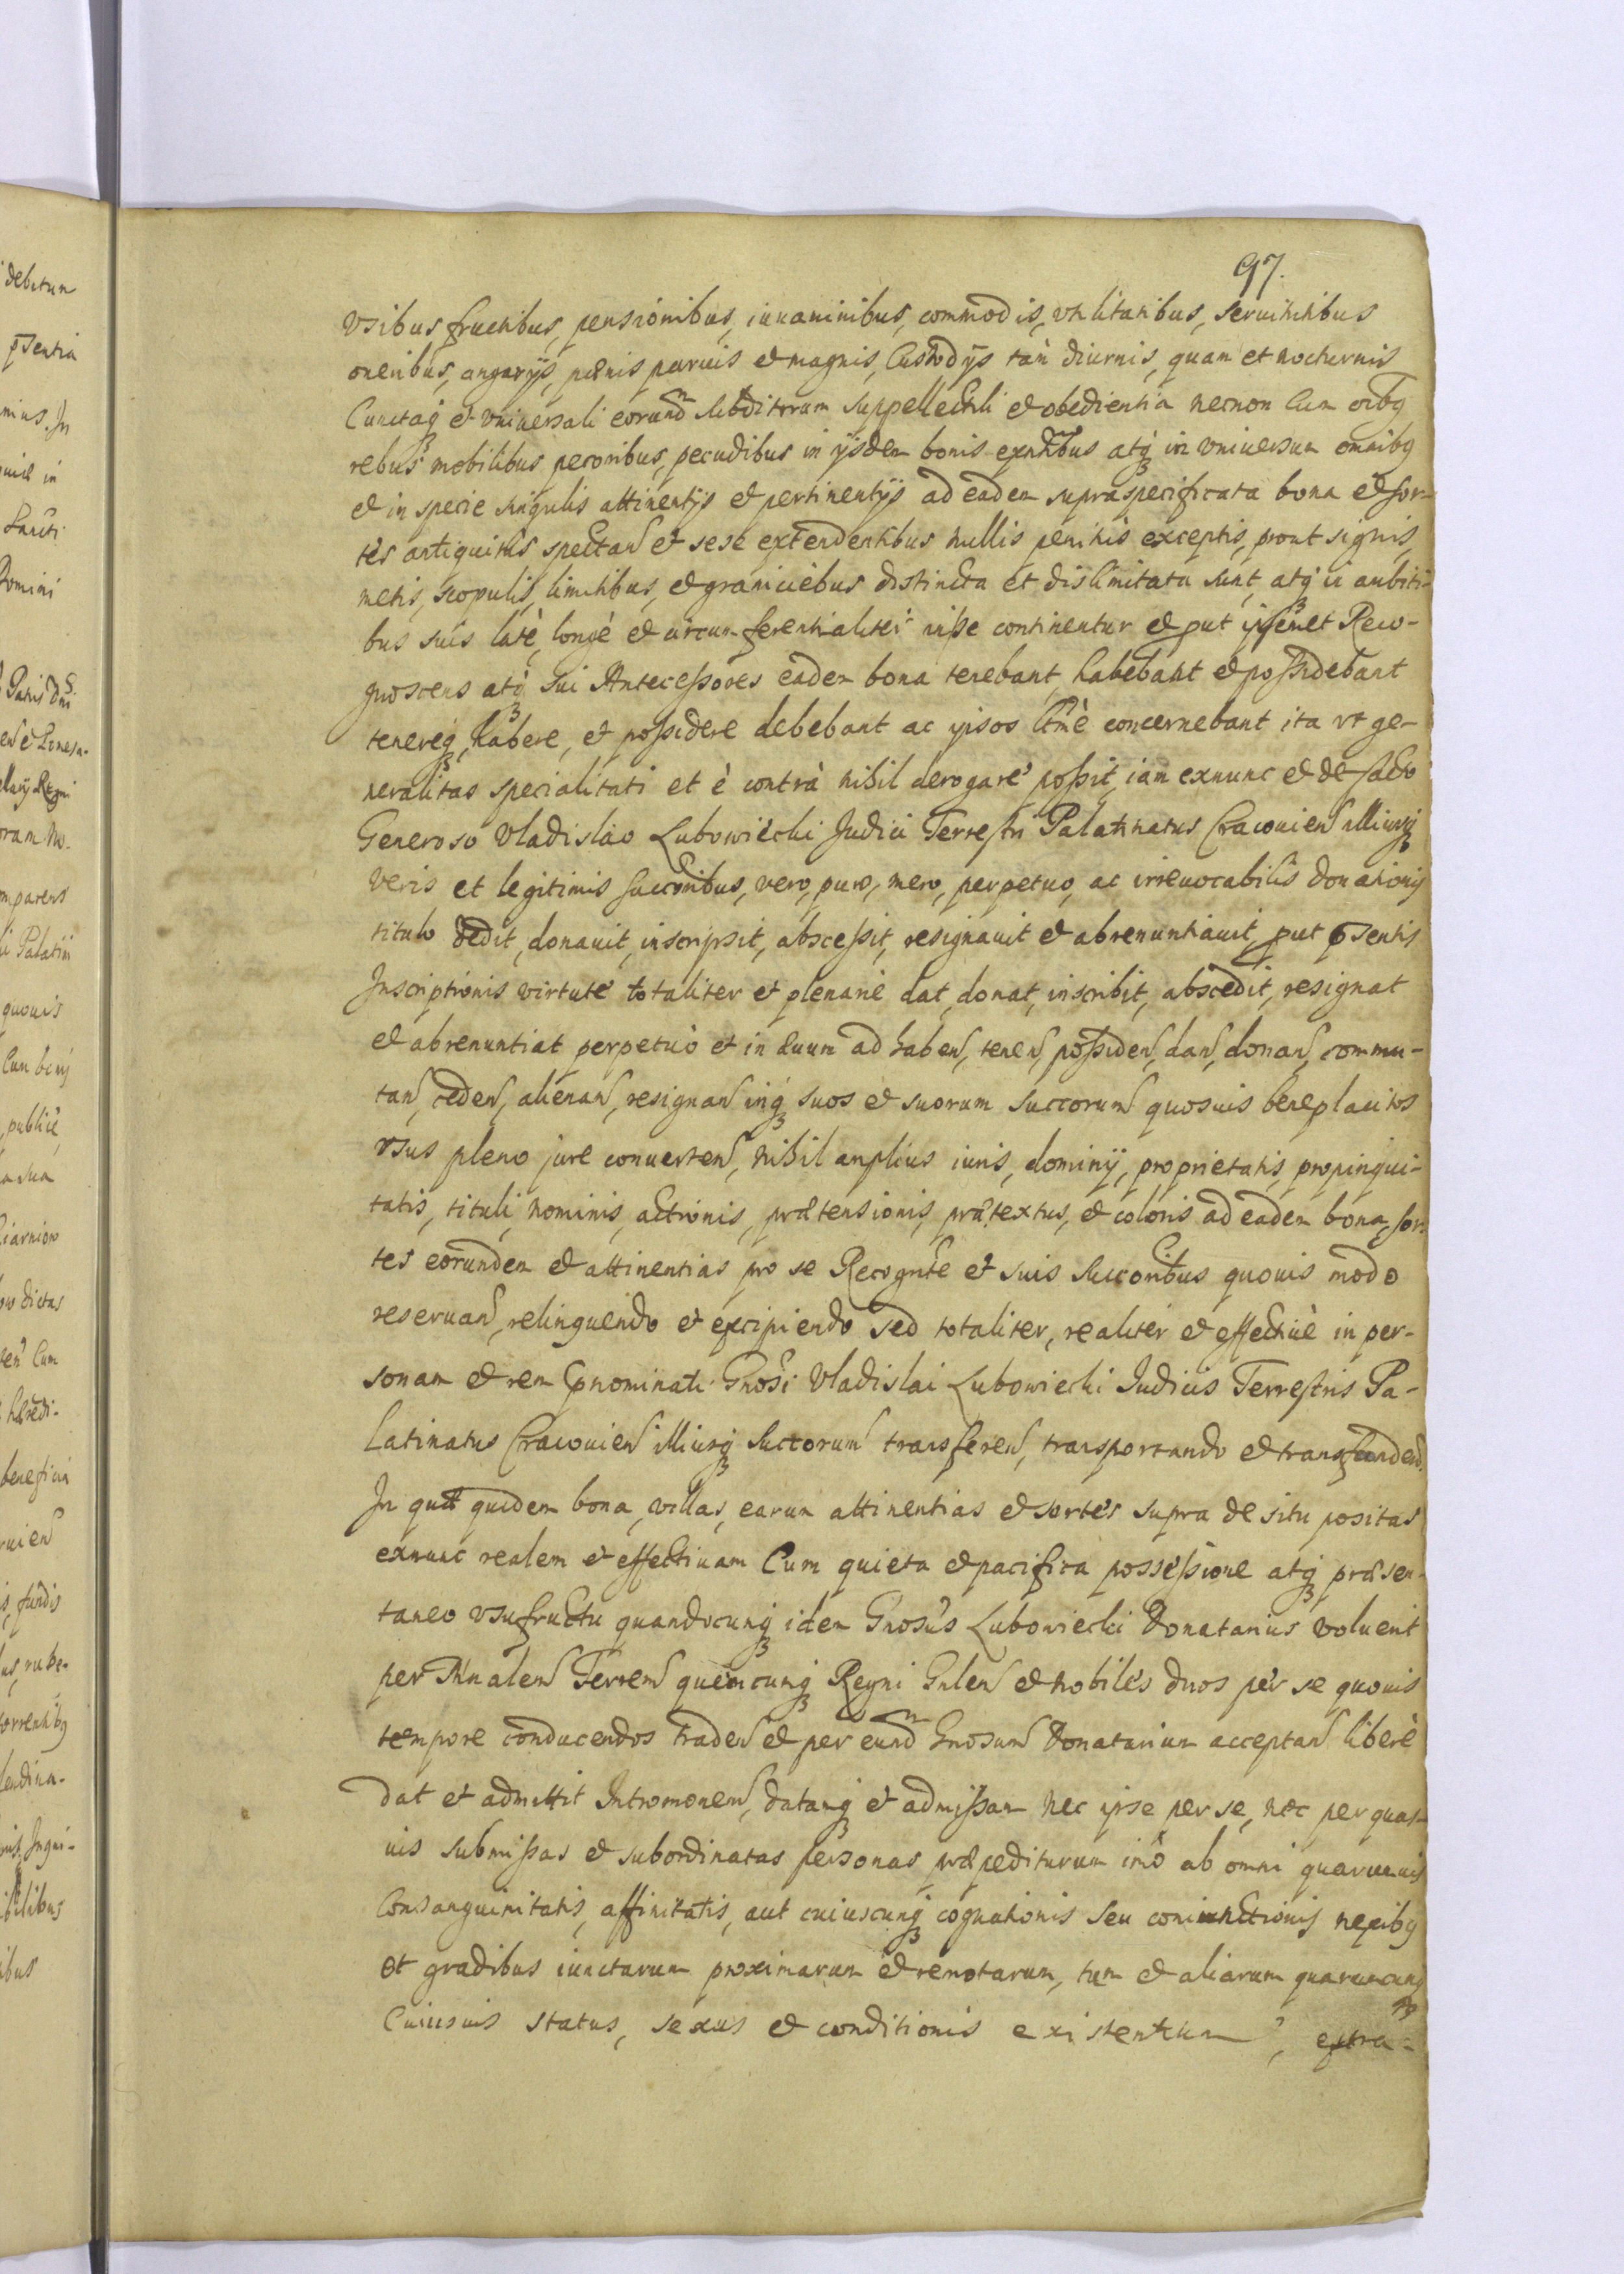 97.
vsibus fructibus, pensionibus, iuuaminibus, commodis, vtilitatibus, seruitutibus
oneribus, angarijs, pænis paruis et magnis, Custodijs tàm diurnis, quam et nocturnis
Cunctaq3 et vniuersali eorundm subditorum suppellectili et obedientia necnon Cum oibq
rebus mobilibus pecoribus, pecudibus in ijsdem bonis exntibus atq3 in vniuersum omnibq
et in specie singulis attinentijs et pertinentijs ad eadem supraspecificata bona et sor-
tes antiquitus spectan et sese extendentibus nullis penitùs exceptis, prout signis,
metis, scopulis, limitibus, et graniciebus distincta et dislimitata sunt, atq3 in ambiti-
bus suis latè, longè et circumferentialiter in se continentur et put ipsemet Reco-
gnoscens atq3 sui Antecessores eadem bona tenebant, habebant et possidebant
tenereq3, habere, et possidere debebant ac ipsos ltmè concernebant ita vt ge-
neralitas specialitati et è contrà nihil derogare possit, iam exnunc et de facto
Generoso Vladislao Lubowiecki Judici Terrestri Palatinatus Cracouien illiusq3
veris et legitimis succoribus, vero, puro, mero, perpetuo, ac irreuocabilis donationis
titulo dedit, donauit, inscripsit, abscessit, resignauit et abrenuntiauit, put psentis
Inscriptionis virtute totaliter et plenariè dat, donat, inscribit, abscedit, resignat
et abrenuntiat perpetuò et in æuum ad haben, tenen, possiden, dan, donan, commu-
tan, ceden, alienan, resignan inq3 suos et suorum succorum quosuis beneplacitos
vsus pleno jure conuerten, nihil amplius iuris, dominij, proprietatis, propinqui-
tatis, tituli, nominis, actionis, prætensionis, prætextus, et coloris ad eadem bona, sor-
tes eorundem et attinentias pro se Recognte et suis succoribus quouis modo
reseruan, relinquendo et excipiendo sed totaliter, realiter et effectiuè in per-
sonam et rem pnominati Gnosi Vladislai Lubowiecki Judicis Terrestris Pa-
latinatus Cracouien illiusq3 succorum transferen, transportando et transfundend.
In quæ quidem bona, villas, earum attinentias et sortes supra de situ positas
exnunc realem et effectiuam Cum quieta et pacifica possessione atq3 præsen-
taneo vsufructu quandocunq3 idem Gnosus Lubowiecki Donatarius voluerit
per Mnalem Terrem quemcunq3 Regni Gnlem et nobiles duos per se quouis
tempore conducendos traden et per eundm Gnosum Donatarium acceptan liberè
dat et admittit Intromonem, datamq3 et admissam nec ipse per se, nec per quas-
uis submissas et subordinatas personas præpediturum imò ab omni quarumuis
Consanguinitatis, affinitatis, aut cuiuscunq3 cognationis seu coniunctionis nexibq
et gradibus iunctarum proximarum et remotarum, tum et aliarum quarumcunq3
Cuiusuis status, sexus et conditionis existentium, extra-